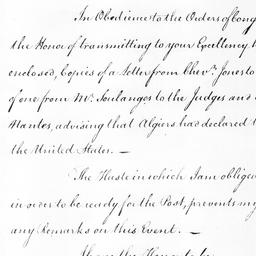 In Obedience to the Orders of Cong
the Honor of transmitting to your Excellency
enclosed, Copies of a Letter from Chevr. Jones to
of one from Mr. Soulanges to the Judges and
Nantes, advising that Algiers has declared
the United States. —
The Haste in which I am oblige
in order to be ready for the Post, prevents my
any Remarks on this Event. —
I have the Honor to be